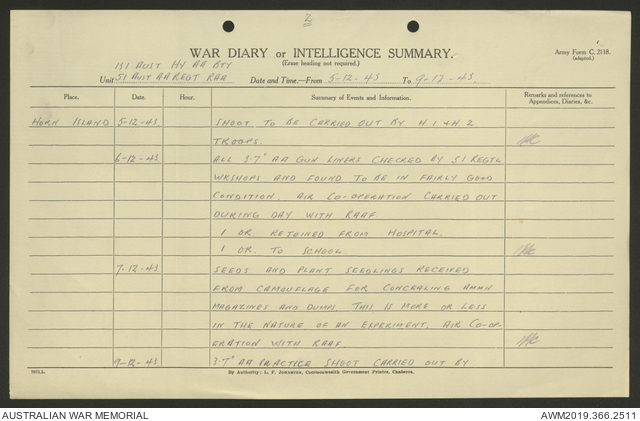 2
WAR DIARY or INTELLIGENCE SUMMARY.
(Erase heading not required.)
Army Form C. 2118.
(adapted.)
131 AUST HY AA BTY
Unit 51 AUST AA REGT RAA Date and Time—From 5-12-43 To 9-12-43.
Place. Date. Hour. Summary of Events and Information. Remarks and references to Appendices, Diaries, &c.
HORN ISLAND 5-12-43. SHOOT TO BE CARRIED OUT BY H.1 & H.2
TROOPS.
6-12-43 ALL 3.7" AA GUN LINERS CHECKED BY 51 REGTL
WKSHOPS AND FOUND TO BE IN FAIRLY GOOD
CONDITION. AIR CO-OPERATION CARRIED OUT
DURING DAY WITH RAAF.
1 OR. REJOINED FROM HOSPITAL.
1 OR. TO SCHOOL.
7-12-43 SEEDS AND PLANT SEEDLINGS RECEIVED
FROM CAMOUFLAGE FOR CONCEALING AMMN
MAGAZINES AND DUMPS. THIS IS MORE OR LESS
IN THE NATURE OF AN EXPERIMENT. AIR CO-OP-
ERATION WITH RAAF.
9-12-43 3.7" AA PRACTICE SHOOT CARRIED OUT BY
By Authority: L. F. Johnston, Commonwealth Government Printer, Canberra.
AUSTRALIAN WAR MEMORIAL
AWM2019.366.2511